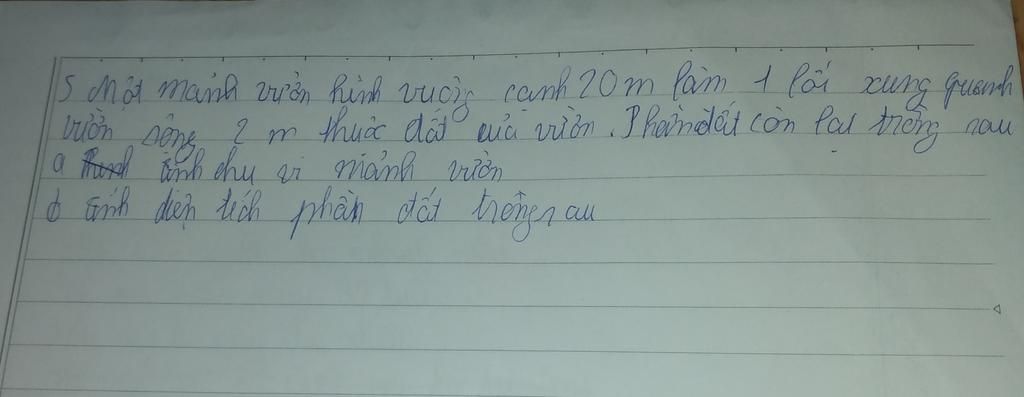 5 Một mảnh vườn hình vuông cạnh 20 m làm 1 lối xung quanh
vườn rộng 2 m thuộc đất của vườn. Phần đất còn lại trồng rau
a tính chu vi mảnh vườn
b tính diện tích phần đất trồng rau